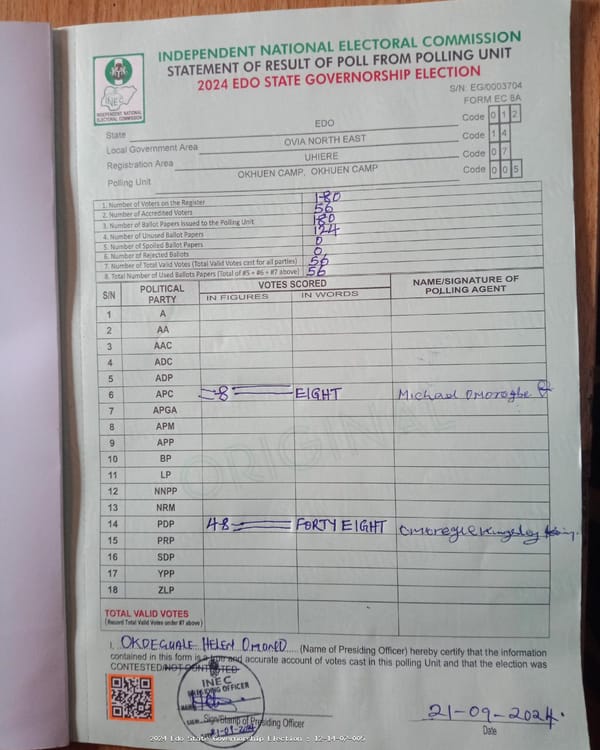 INDEPENDENT NATIONAL ELECTORAL COMMISSION
STATEMENT OF RESULT OF POLL FROM POLLING UNIT
2024 EDO STATE GOVERNORSHIP ELECTION
INEC
INDEPENDENT NATIONAL
ELECTORAL COMMISSION
S/N: EG/0003704
FORM EC 8A
State EDO Code 0 1 2
Local Government Area OVIA NORTH EAST Code 1 4
Registration Area UHIERE Code 0 7
Polling Unit OKHUEN CAMP, OKHUEN CAMP Code 0 0 5
1. Number of Voters on the Register 180
2. Number of Accredited Voters 56
3. Number of Ballot Papers Issued to the Polling Unit 180
4. Number of Unused Ballot Papers 124
5. Number of Spoiled Ballot Papers 0
6. Number of Rejected Ballots 0
7. Number of Total Valid Votes (Total Valid Votes cast for all parties) 56
8. Total Number of Used Ballots Papers (Total of #5 + #6 + #7 above) 56
S/N POLITICAL PARTY VOTES SCORED NAME/SIGNATURE OF POLLING AGENT
IN FIGURES IN WORDS
1 A
2 AA
3 AAC
4 ADC
5 ADP
6 APC 8 EIGHT Michael Omoregbe
7 APGA
8 APM
9 APP
10 BP
11 LP
12 NNPP
13 NRM
14 PDP 48 FORTY EIGHT Omoregie Kingsley
15 PRP
16 SDP
17 YPP
18 ZLP
ORIGINAL
TOTAL VALID VOTES
(Record Total Valid Votes under #7 above)
I, HELEN (Name of Presiding Officer) hereby certify that the information
contained in this form is a true and accurate account of votes cast in this polling Unit and that the election was
CONTESTED/NOT CONTESTED
INEC
PRESIDING OFFICER
Sign/Stamp of Presiding Officer
21-09-2024
Date
2024 Edo State Governorship Election : 12-14-07-005